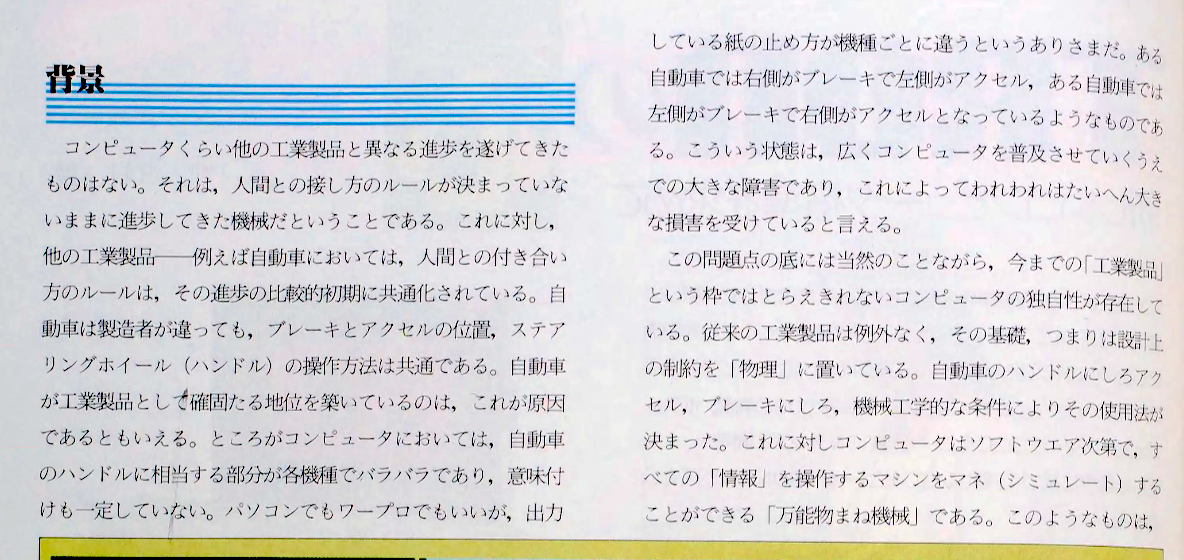 背景
コンピュータくらい他の工業製品と異なる進歩を遂げてきた
ものはない。それは，人間との接し方のルールが決まっていな
いままに進歩してきた機械だということである。これに対し，
他の工業製品――例えば自動車においては，人間との付き合い
方のルールは，その進歩の比較的初期に共通化されている。自
動車は製造者が違っても，ブレーキとアクセルの位置，ステア
リングホイール（ハンドル）の操作方法は共通である。自動車
が工業製品として確固たる地位を築いているのは，これが原因
であるともいえる。ところがコンピュータにおいては，自動車
のハンドルに相当する部分が各機種でバラバラであり，意味付
けも一定していない。パソコンでもワープロでもいいが，出力
している紙の止め方が機種ごとに違うというありさまだ。ある
自動車では右側がブレーキで左側がアクセル，ある自動車では
左側がブレーキで右側がアクセルとなっているようなものであ
る。こういう状態は，広くコンピュータを普及させていくうえ
での大きな障害であり，これによってわれわれはたいへん大き
な損害を受けていると言える。
この問題点の底には当然のことながら，今までの「工業製品」
という枠ではとらえきれないコンピュータの独自性が存在して
いる。従来の工業製品は例外なく，その基礎，つまりは設計上
の制約を「物理」に置いている。自動車のハンドルにしろアク
セル，ブレーキにしろ，機械工学的な条件によりその使用法が
決まった。これに対しコンピュータはソフトウエア次第で，す
べての「情報」を操作するマシンをマネ（シミュレート）する
ことができる「万能物まね機械」である。このようなものは，